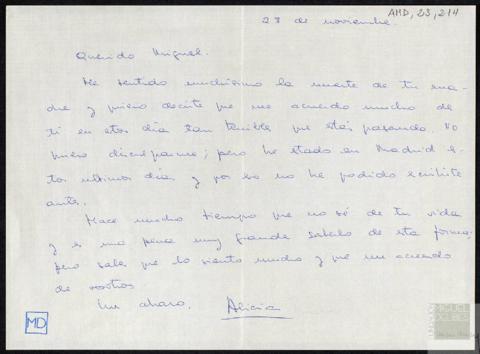 AMD, 23, 214
23 de noviembre.
Querido Miguel.
He sentido muchísimo la muerte de tu ma-
dre y quiero decirte que me acuerdo mucho de
ti en estos días tan terible que estás pasando. No
quiero disculparme; pero he estado en Madrid es-
tos ultimos días y por eso no he podido escribirte
antes.
Hace mucho tiempo que no sé de tu vida
y es una pena muy grande saberlo de esta forma,
pero sabes que lo siento mucho y que me acuerdo
de vosotros
Un abrazo. Alicia
MD
FUNDACIÓN
MIGUEL
DELIBES